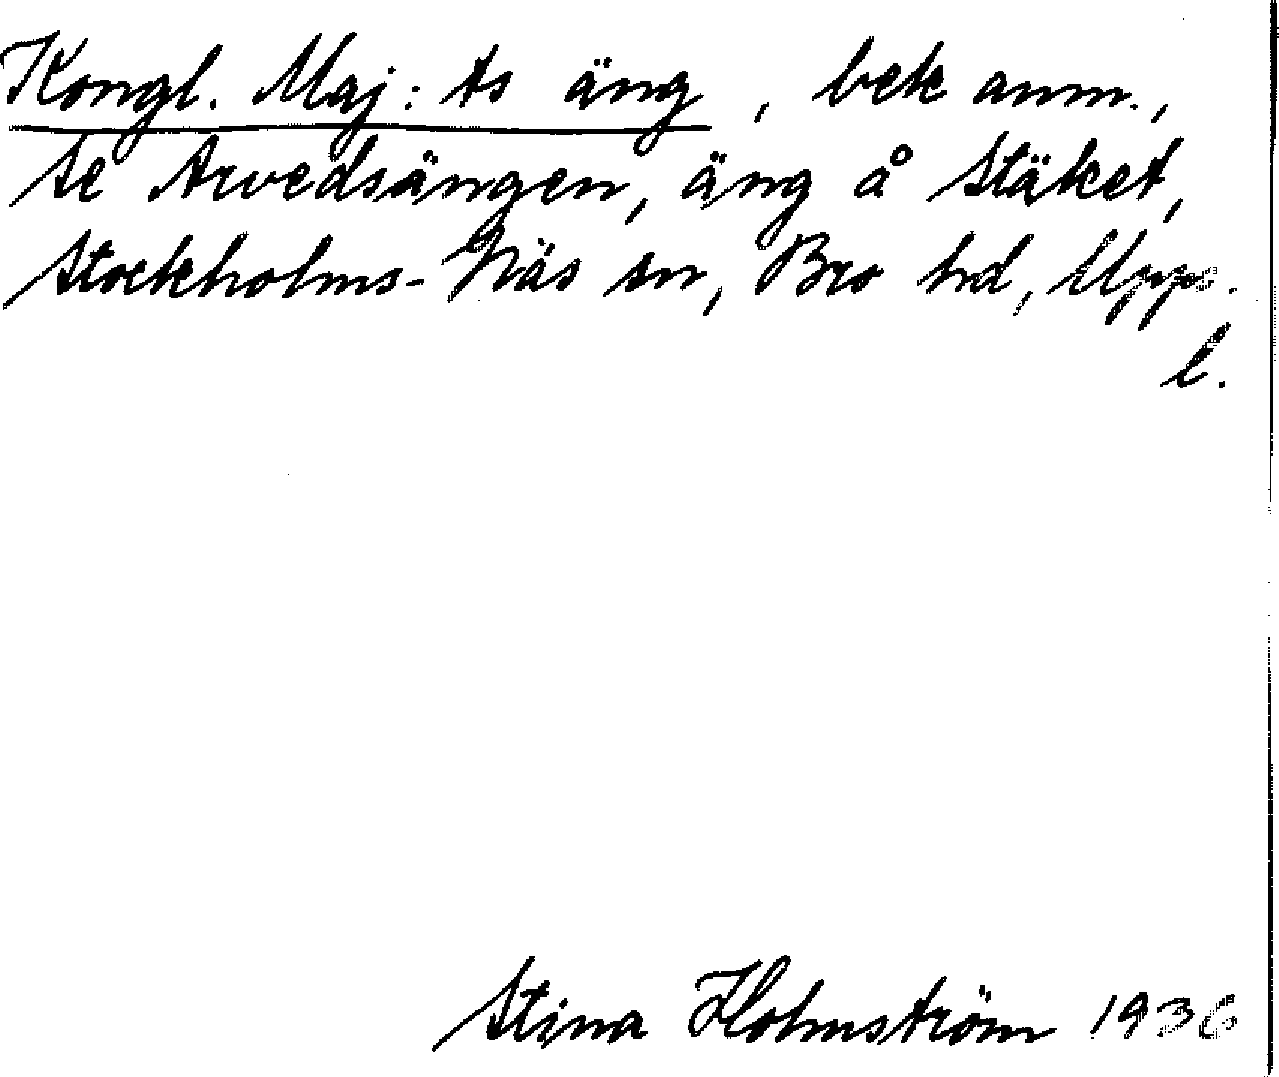 Kongl. Maj:ts äng, bek anm.,
se Arvedsängen, äng å Stäket,
Stockholms-Näs sn, Bro hd, Upps.
l.
Stina Holmström 1936